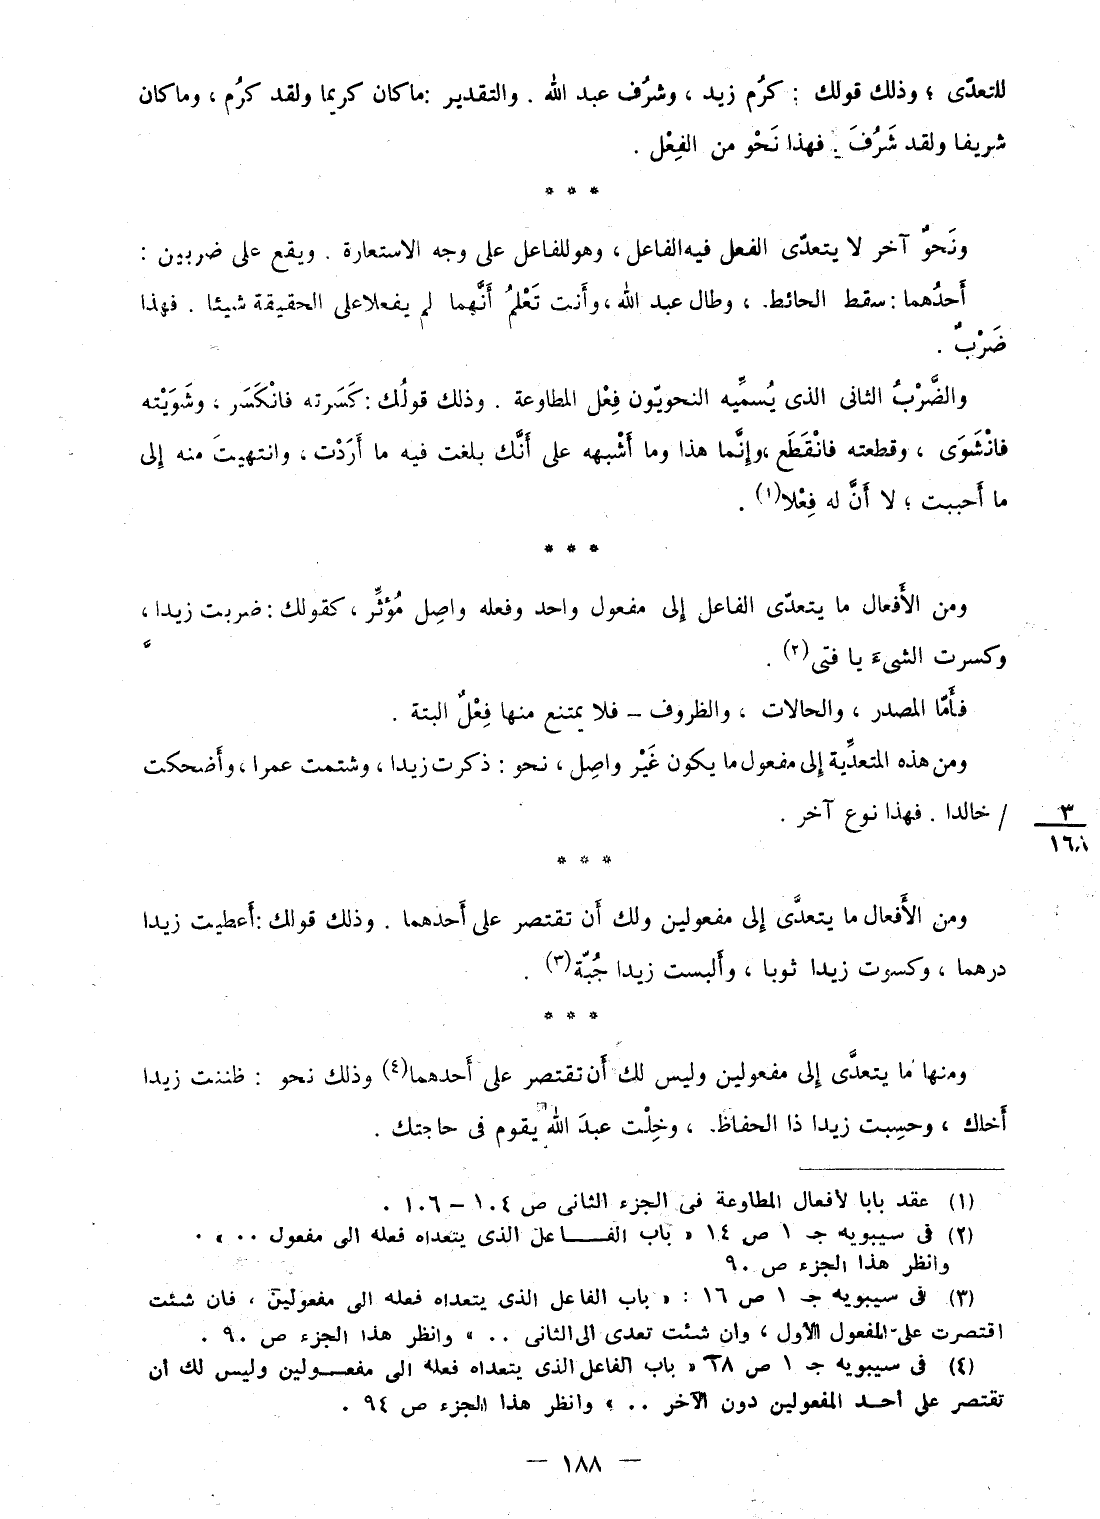 للتعدّى ؛ وذلك قولك : كرُم زيد ، وشرُف عبد الله . والتقدير : ماكان كريما ولقد كرُم ، وماكان
شريفا ولقد شَرُفَ . فهذا نَحْو من الفِعْل .
* * *
ونَحوٌ آخر لا يتعدّى الفعل فيه الفاعل ، وهو للفاعل على وجه الاستعارة . ويقع على ضربين :
أَحدُهما : سقط الحائط ، وطال عبد الله ، وأَنت تَعْلمُ أَنَّهما لم يفعلا على الحقيقة شيئا . فهذا
ضَرْبٌ .
والضَّرْبُ الثانى الذى يُسمِّيه النحويّون فِعْل المطاوعة . وذلك قولُك : كَسَرته فانْكَسَر ، وشَوَيْته
فانْشَوَى ، وقطعته فانْقَطَع ، وإِنَّما هذا وما أَشْبهه على أَنَّك بلغت فيه ما أَرَدْت ، وانتهيتَ منه إِلى
ما أَحببت ؛ لا أَنَّ له فِعْلا(١) .
* * *
ومن الأَفعال ما يتعدّى الفاعل إِلى مفعول واحد وفعله واصِل مُؤثِّر ، كقولك : ضربت زيدا ،
وكسرت الشىءَ يا فتى(٢) .
فأَمّا المصدر ، والحالات ، والظروف – فلا يمتنع منها فِعْلٌ البتة .
ومن هذه المتعدِّية إِلى مفعول ما يكون غَيْر واصِل ، نحو : ذكرت زيدا ، وشتمت عمرا ، وأَضحكت
/ خالدا . فهذا نوع آخر .
٣
* * *
ومن الأَفعال ما يتعدَّى إِلى مفعولين ولك أَن تقتصر على أَحدهما . وذلك قولك : أَعطيت زيدا
درهما ، وكسوت زيدا ثوبا ، وأَلبست زيدا جُبّة(٣) .
* * *
ومنها ما يتعدَّى إِلى مفعولين وليس لك أَن تقتصر على أَحدهما(٤) وذلك نحو : ظننت زيدا
أَخاك ، وحسِبت زيدا ذا الحفاظ ، وخِلْت عبدَ الله يقوم فى حاجتك .
(١) عقد بابا لأفعال المطاوعة فى الجزء الثانى ص ١٠٤ – ١٠٦ .
(٢) فى سيبويه جـ ١ ص ١٤ « باب الفاعل الذى يتعداه فعله الى مفعول .. » .
وانظر هذا الجزء ص ٩٠
(٣) فى سيبويه جـ ١ ص ١٦ : « باب الفاعل الذى يتعداه فعله الى مفعولين ، فان شئت
اقتصرت على المفعول الأول ، وان شئت تعدى الى الثانى .. » وانظر هذا الجزء ص ٩٠ .
(٤) فى سيبويه جـ ١ ص « باب الفاعل الذى يتعداه فعله الى مفعولين وليس لك أن
تقتصر على أحد المفعولين دون الآخر .. » وانظر هذا الجزء ص ٩٤ .
— ١٨٨ —